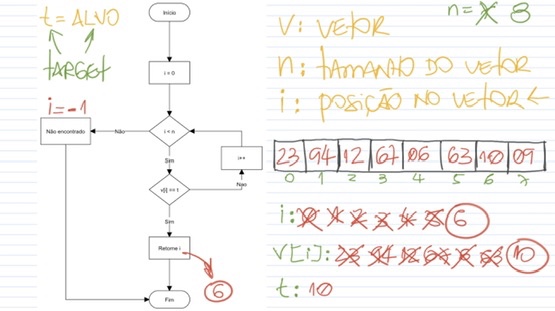 t = ALVO
TARGET
i = -1
Início
i = 0
i < n
Não
Não encontrado
Sim
i++
v[i] == t
Não
Sim
Retorne i
6
Fim
n = 8
V: VETOR
n: TAMANHO DO VETOR
i: POSIÇÃO NO VETOR ←
23 94 12 67 06 63 10 09
0 1 2 3 4 5 6 7
i: 0 1 2 3 4 5 6
V[i]: 23 94 12 67 6 63 10
t: 10